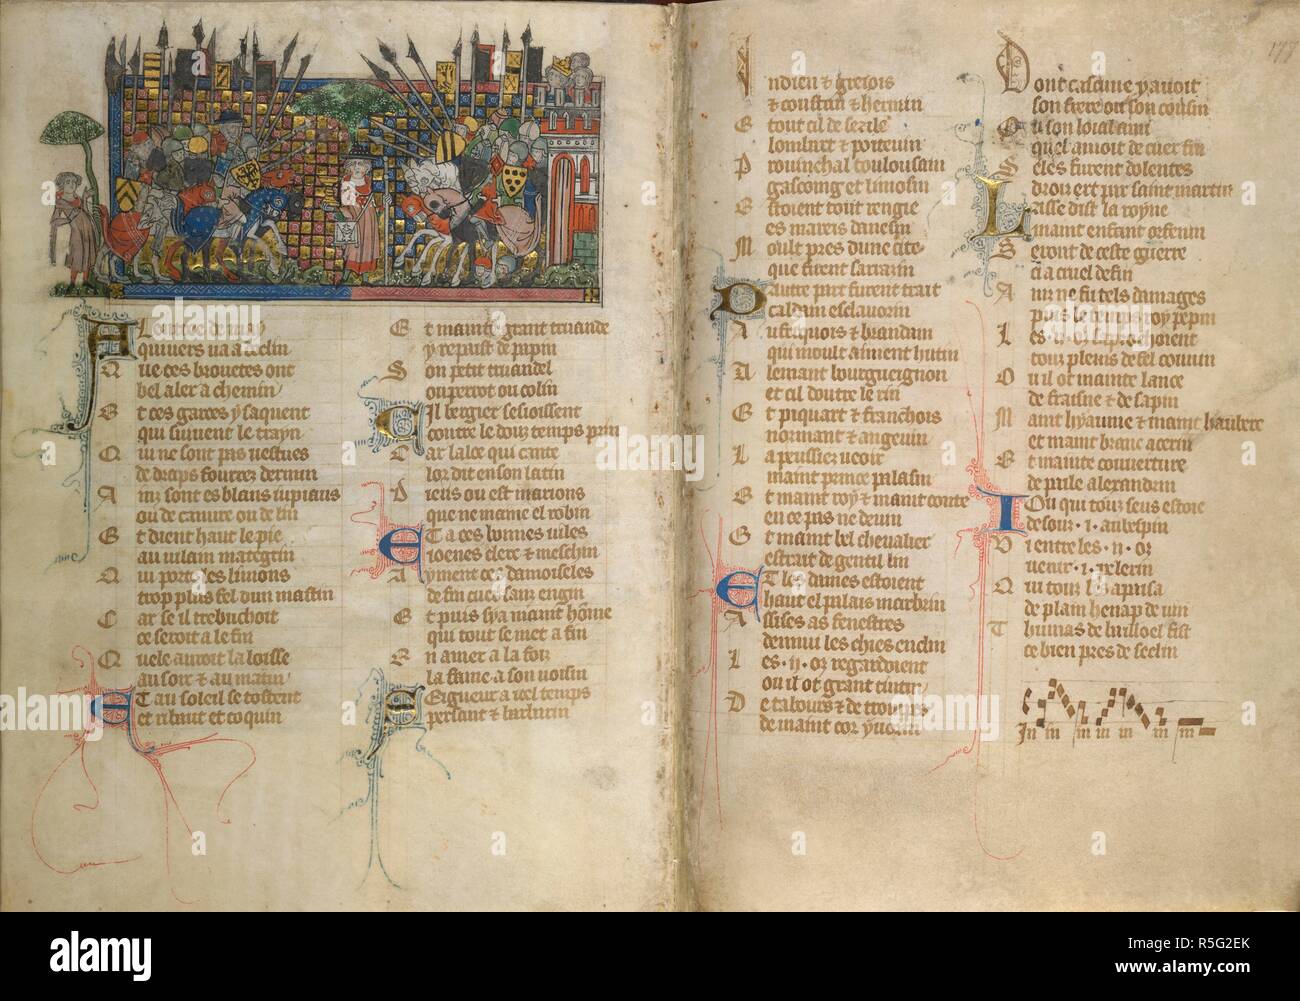 A Lentree de may
qui uers ua a declin
Q ue ces brouetes ont
bel aler a chemin
E t ces garces y saquent
qui suiuent le trayn
Q ui ne sont pas uestues
de draps fourrez dermin
A inz sont es blans iupiaus
ou de canure ou de lin
E t dient haut le pie
au uilain mategrin
Q ui porte les limons
trop plus fel dun mastin
C ar se il trebuchoit
ce seroit a le fin
Q uele auroit la loisse
au soir & au matin
E T au soleil se tostent
et ribaut et coquin
E t mainte grant truande
y repaist de pepin
S on petit truandel
ou perrot ou colin
C Il bergier sesioissent
contre le douz temps prin
C ar laloe qui cante
lor dit en son latin
D ieus ou est marions
que ne maine el robin
E T a ces bonnes uiles
ioenes clerc & meschin
A yment ces damoiseles
de fin cuer sanz engin
E t puis sy a maint homme
qui tout se met a fin
E n amer a la foiz
la fame a son uoisin
E N gueur a uel temps
persant & barbarin
I ndien & gresois
& coustan & hermin
E tout cil de sezile
lombart & poiteuin
P rouinchal toulousain
gascoing et limosin
E stoient tout rengie
es mares dauespin
M oult pres dune cite
que firent sarrazin
D autre part furent trait
caldain esclauorin
A uferquois & brandain
qui moult aiment hutin
A lemant bourgueignon
et cil doutre le rin
E t piquart & franchois
normant & angeuin
L a peussiez ueoir
maint prince palasin
E t maint roy & maint conte
en ce pas ne deuin
E t maint bel cheualier
estrait de gentil lin
E T les dames estoient
haut el palais marbrin
A ssises as fenestres
denmui les chies enclin
L es .ij. oz regardoient
ou il ot grant tintin
D e tabours & de trompes
de maint cor yuorin
D ont cascune y auoit
son frere ou son cousin
O u son loial ami
quel amoit de cuer fin
S eles furent dolentes
droiz ert par saint martin
L asse dist la royne
maint enfant orfenin
S eront de ceste guerre
ci a cruel defin
A inz ne fu tels damages
puis le temps roy pepin
L es .ij. oz saprochoient
touz pleins de fel couuin
O u il ot mainte lance
de fraisne & de sapin
M aint hyaume & maint haubere
et maint branc acerin
E t mainte couuerture
de paile alexandrin
I Ou qui touz seus estoie
desouz .i. aubespin
V i entre les .ij. oz
uenir .i. pelerin
Q ui touz les apaisa
de plain henap de uin
T humas de bailloel fist
ce bien pres de seclin
In in in in in in in
177
alamy
Image ID: R5G2EK
www.alamy.com